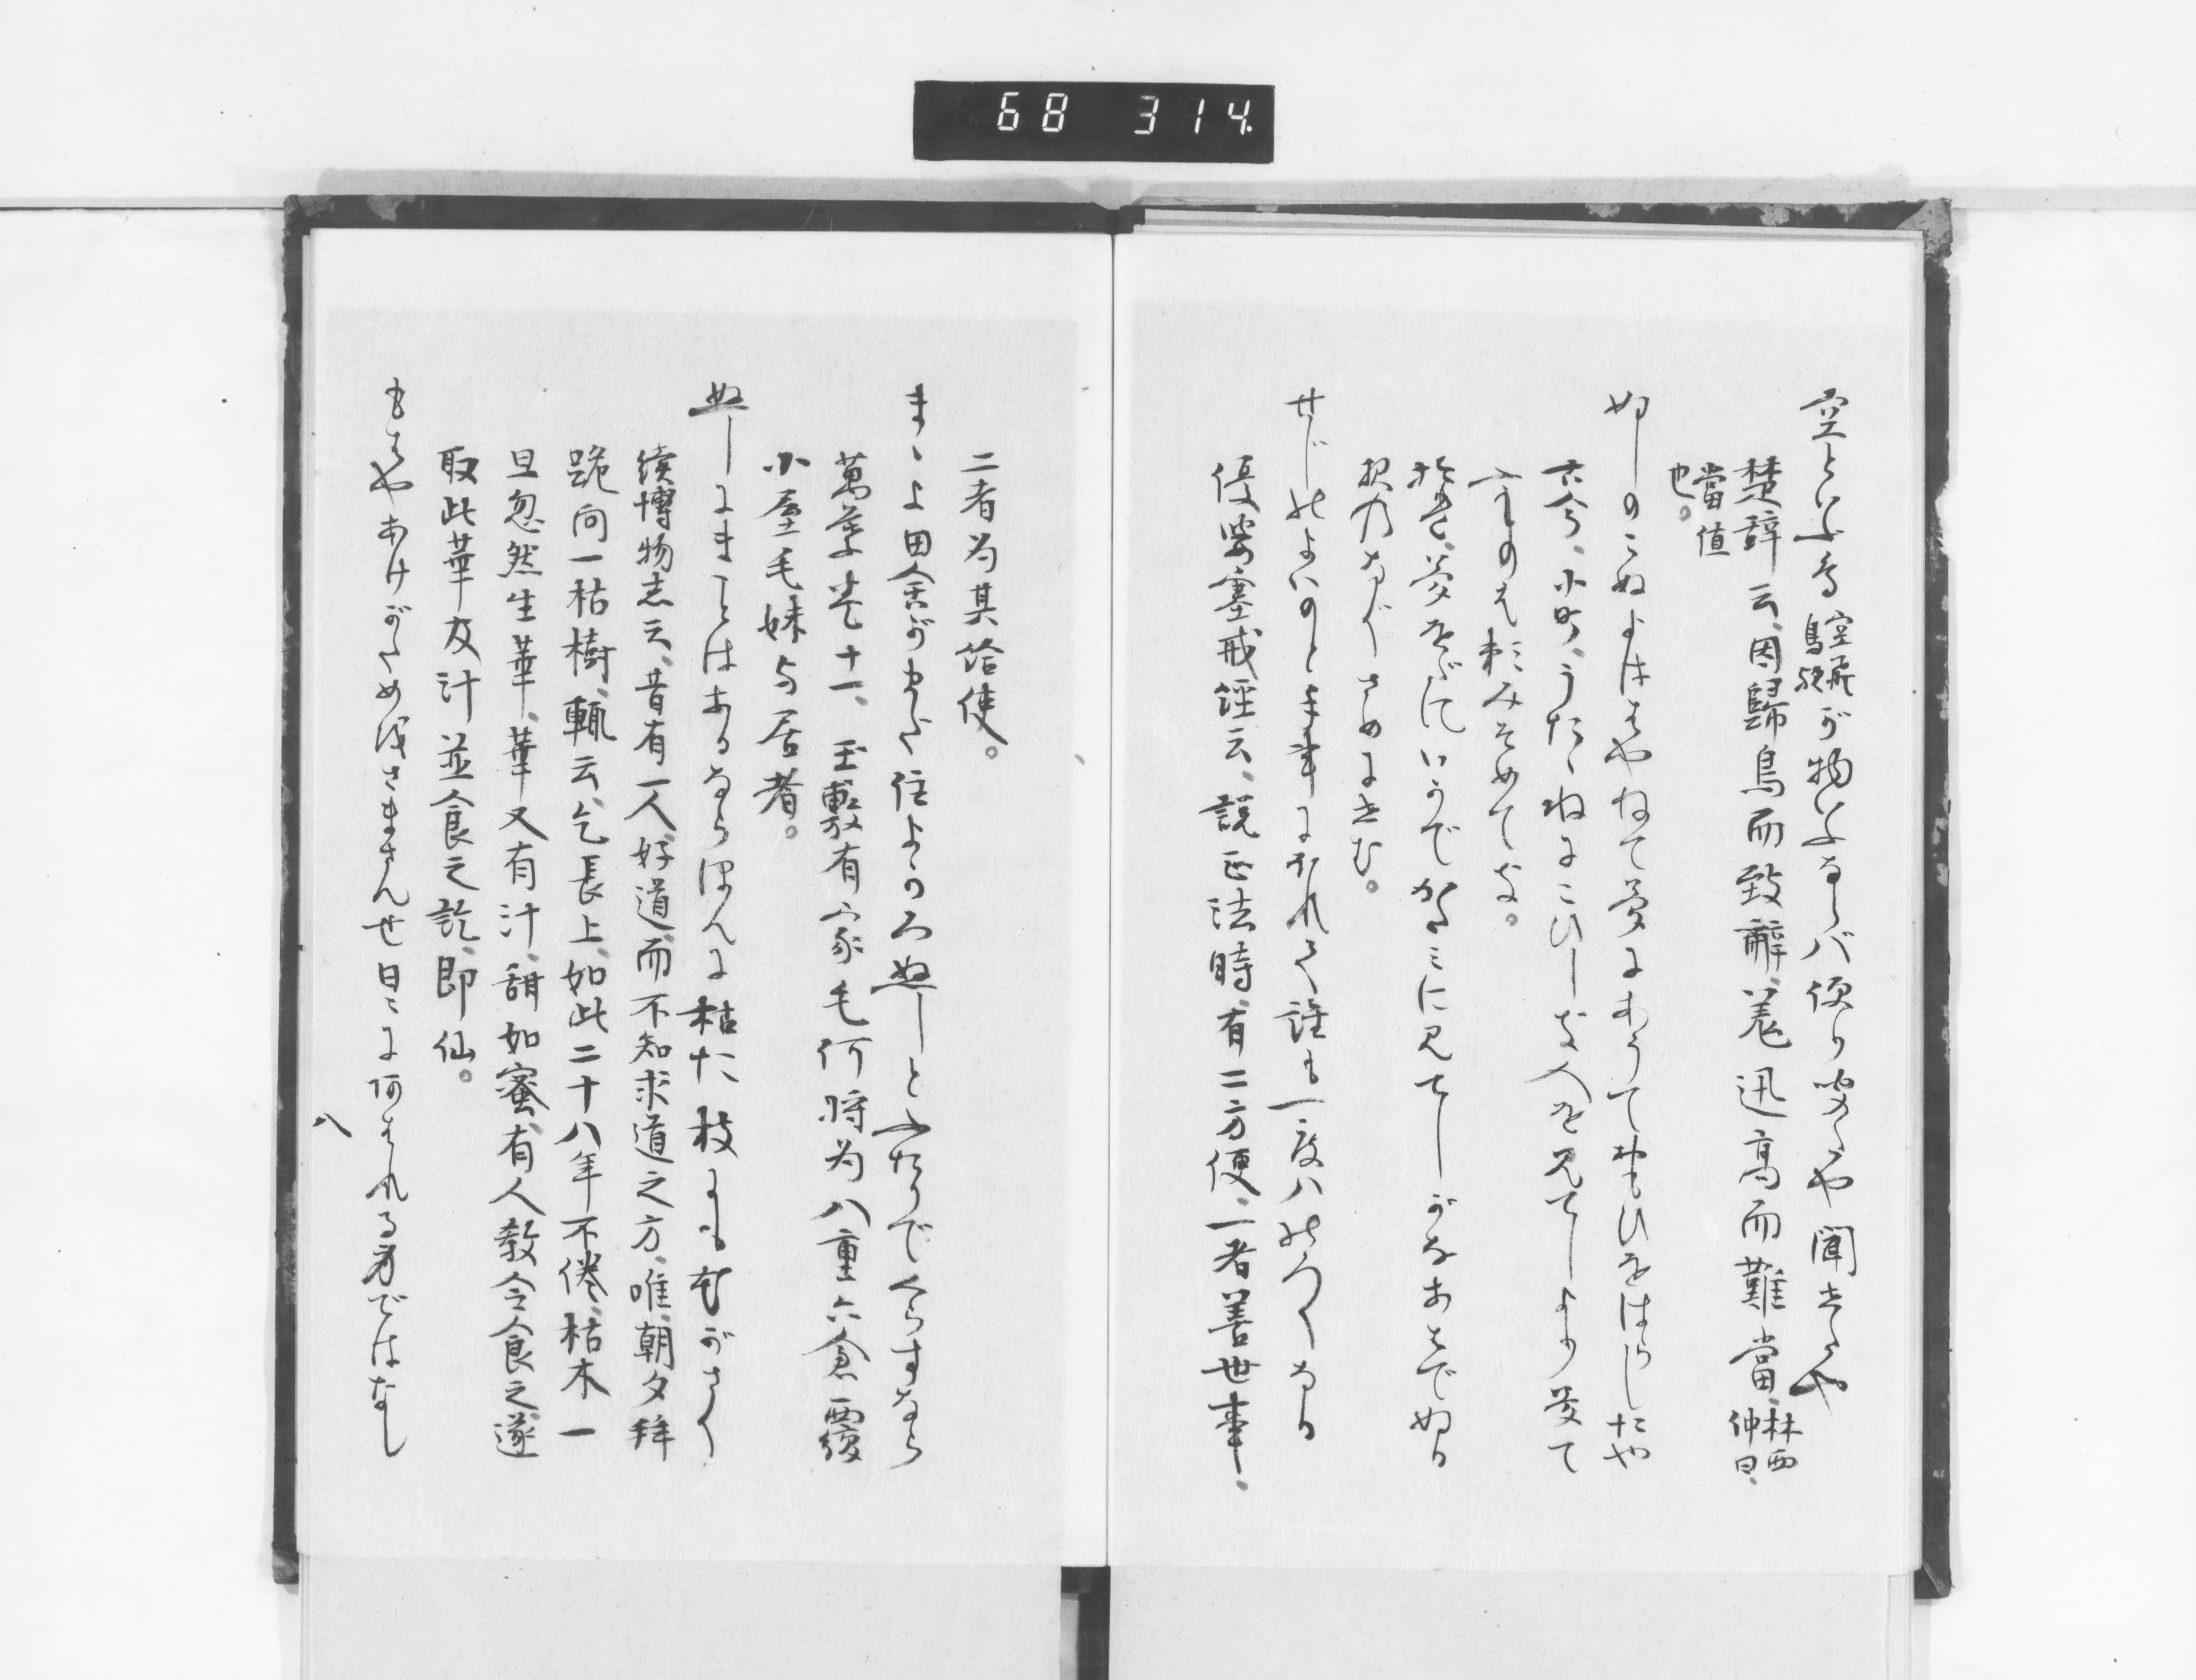 68 314.
空といふ鳥空飛鳥歟が物いふならバ便り聞たや聞きたや
楚辞云、因歸鳥而致辭、羌迅高而難當、林西仲曰、
當値也。
ぬしのこぬよははやねて夢にあうておもひをはらしたや
古今、小町、うたゝねにこひしき人を見てしより夢て
ふものは頼みそめてき。
拾遺、夢をだにいかでかたみに見てしがなあはでぬる
夜のなぐさめにせむ。
優婆塞戒經云、説正法時、有二方便、一者善世事、
二者為其給使。
まゝよ田舎がまた住よかろぬしとふたりでくらすなら
萬葉卷十一、玉敷有家毛何将為八重六倉覆
小屋毛妹与居者。
ぬしにまことはあるならほんに枯た枝にも花がさく
續博物志云、昔有一人、好道、而不知求道之方、唯朝夕拜
跪向一枯樹、輒云、乞長上、如此二十八年不倦、枯木一
旦忽然生華、華又有汁、甜如蜜、有人教令食之、遂
取此華及汁並食之訖、即仙。
もはやあけがため澄さまさんせ日ゝに何はれる身ではなし
八